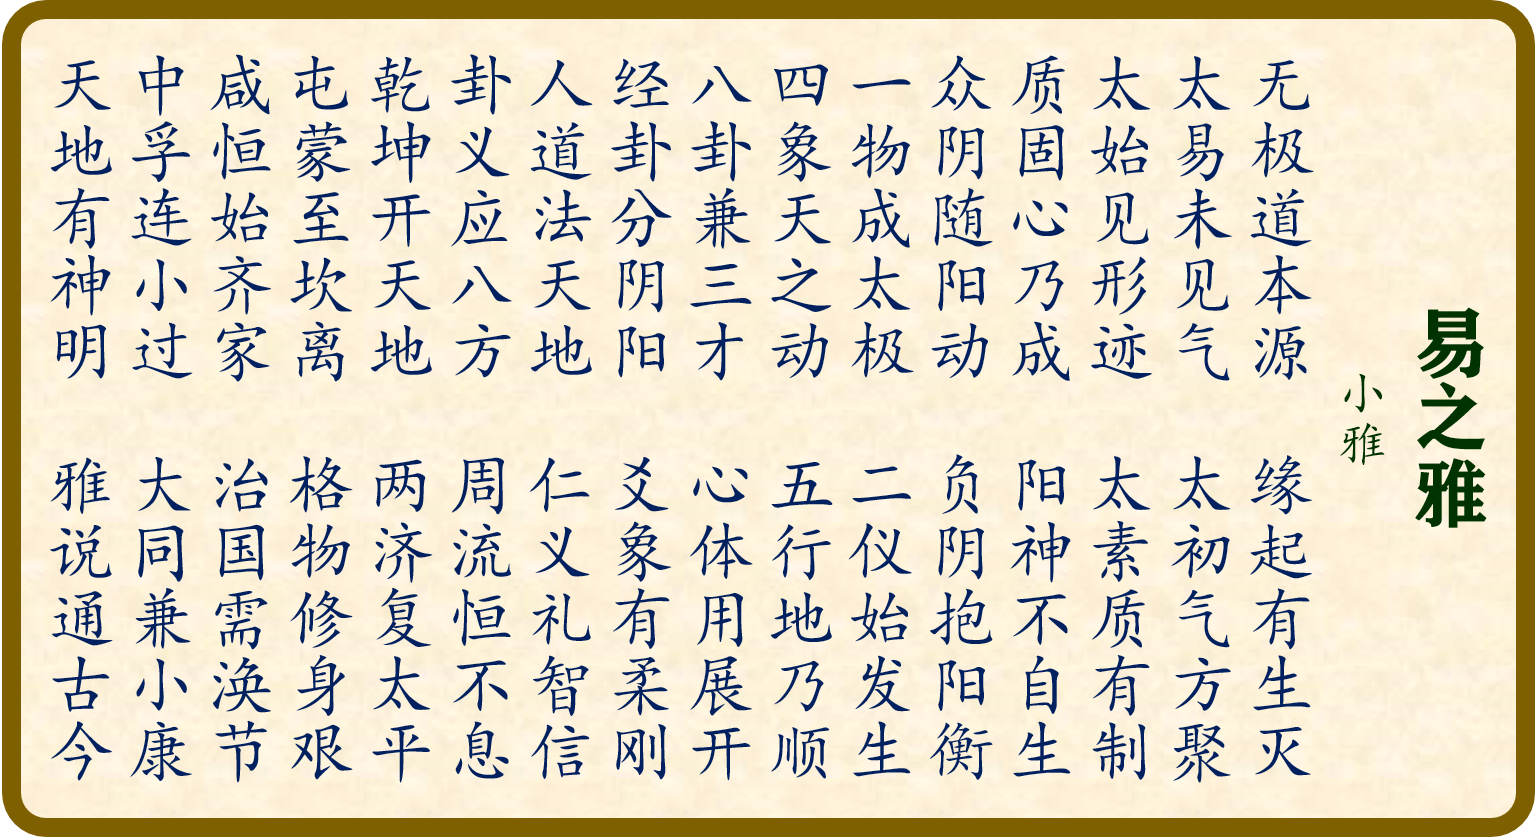 易之雅
小雅
无极道本源 缘起有生灭
太易未见气 太初气方聚
太始见形迹 太素质有制
质固心乃成 阳神不自生
众阴随阳动 负阴抱阳衡
一物成太极 二仪始发生
四象天之动 五行地乃顺
八卦兼三才 心体用展开
经卦分阴阳 爻象有柔刚
人道法天地 仁义礼智信
卦义应八方 周流恒不息
乾坤开天地 两济复太平
屯蒙至坎离 格物修身艰
咸恒始齐家 治国需涣节
中孚连小过 大同兼小康
天地有神明 雅说通古今